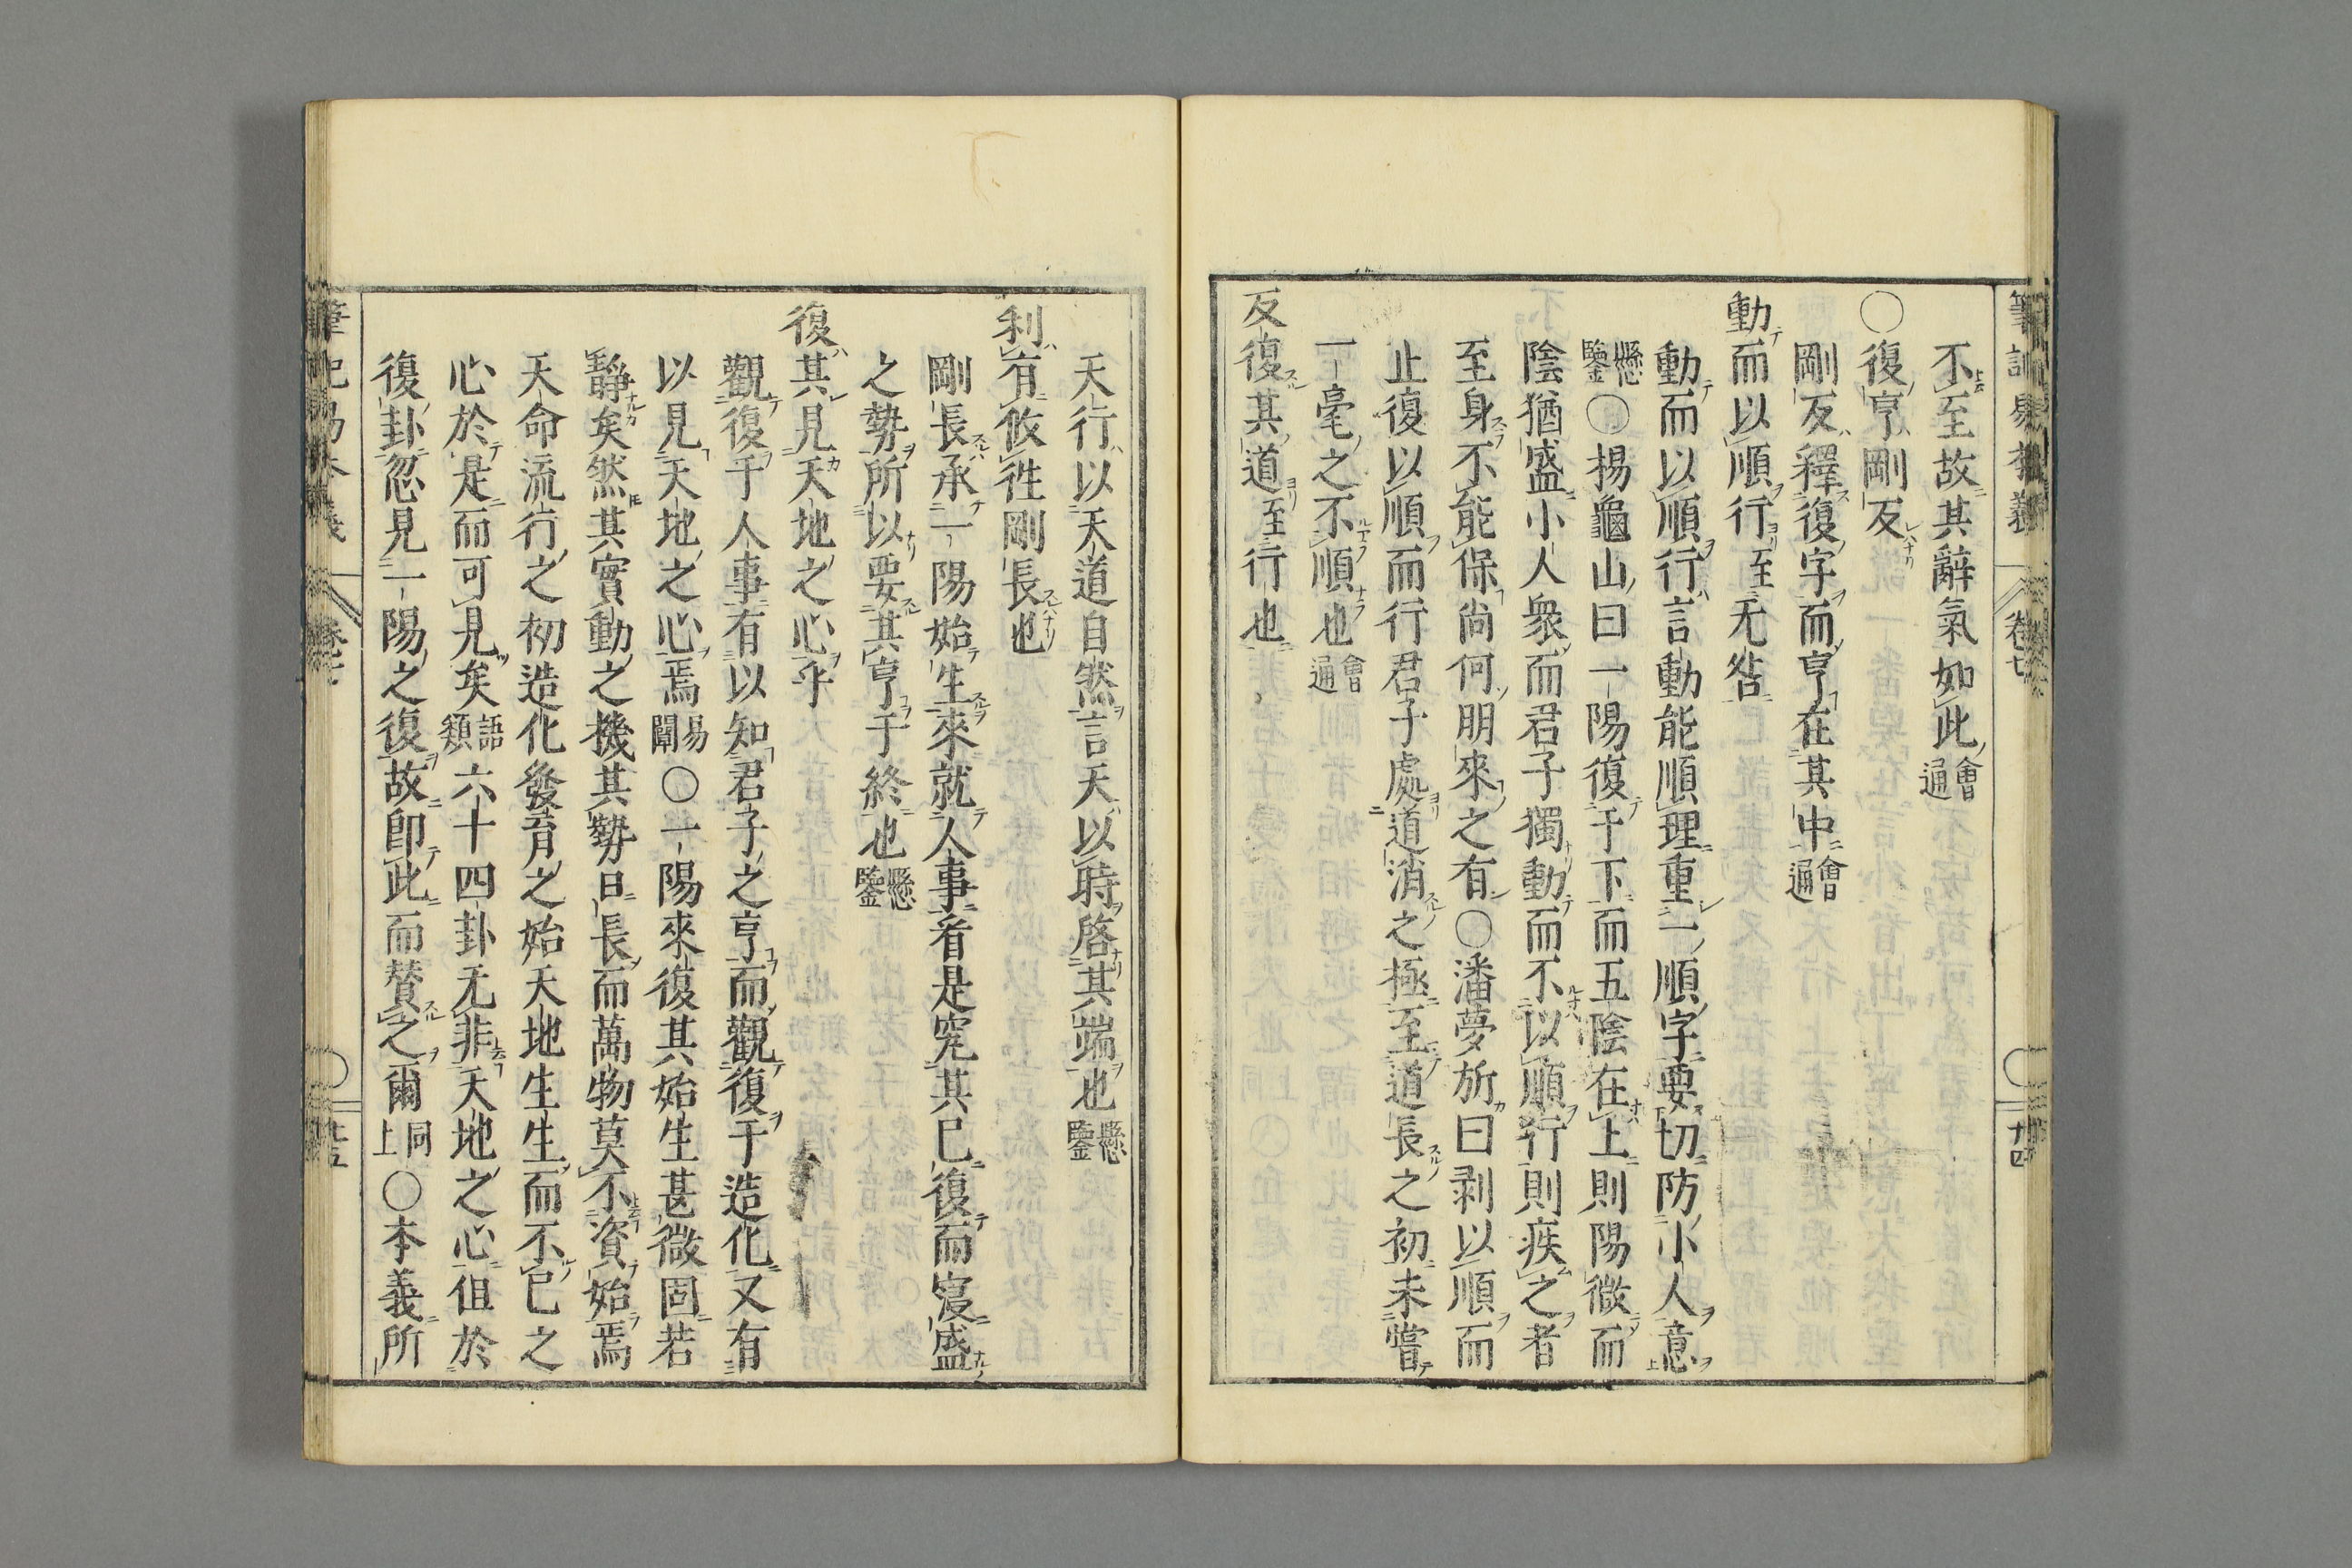 不至故其辭氣如此會通
○復亨剛反
剛反釋復字而亨在其中會通
動而以順行至无咎
動而以順行言動能順理重一順字要切防小人意
懸鑒○楊龜山曰一陽復于下而五陰在上則陽微而
陰猶盛小人衆而君子獨動而不以順行則疾之者
至身不能保尚何朋來之有○潘夢旂曰剥以順而
止復以順而行君子處道消之極至道長之初未嘗
一毫之不順也會通
反復其道至行也
天行以天道自然言天以時啓其端也懸鑒
利有攸徃剛長也
剛長承一陽始生來就人事看是究其已復而寖盛
之勢所以要其亨于終也懸鑒
復其見天地之心乎
觀復于人事有以知君子之亨而觀復于造化又有
以見天地之心焉易闡○一陽來復其始生甚微固若
靜矣然其實動之機其勢日長而萬物莫不資始焉
天命流行之初造化發育之始天地生生而不已之
心於是而可見矣語類六十四卦无非天地之心但於
復卦忽見一陽之復故即此而贊之爾同上○本義所